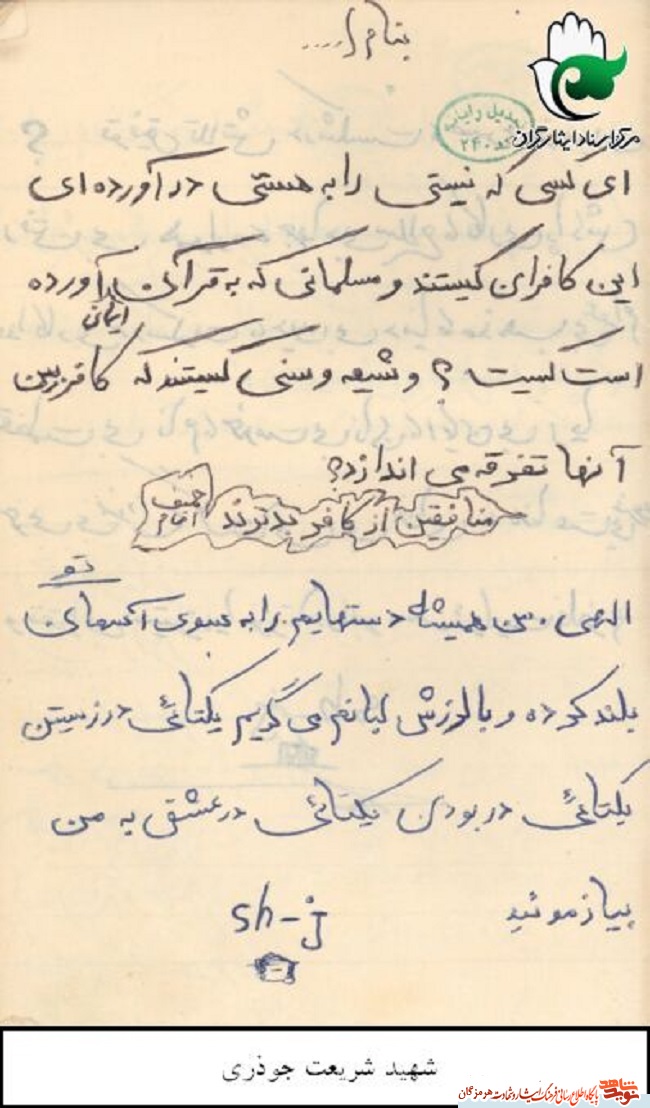 بنام ا....
مرکز اسناد ایثارگران
تبدیل رایانه
کد ۲۴۰
ای کسی که نیستی را به هستی در آورده ای
این کافران کیستند و مسلمانی که به قرآن آورده
ایمان
است کیست ؟ و شیعه و سنی کیستند که کافر بین
آنها تفرقه می اندازد؟
منافقین از کافر بدترند امام خمینی
تو
الهی من همیشه دستهایم را به سوی آسمان
بلند کرده و با لرزش لبانم می گویم یکتائی در زیستن
یکتائی در بودن یکتائی در عشق به من
بیازموئید
sh-j
شهید شریعت جوذری
نوید شاهد
پایگاه اطلاع رسانی فرهنگ ایثار و شهادت هرمزگان